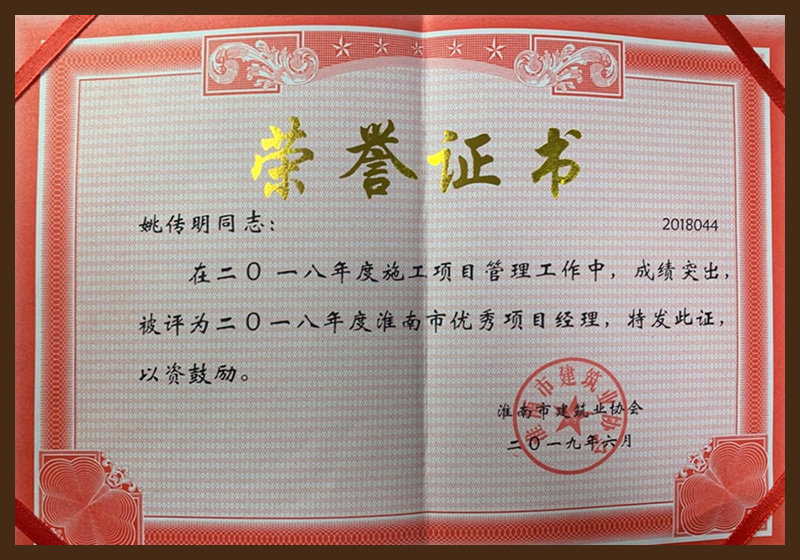 荣誉证书
姚传明同志：
2018044
在二〇一八年度施工项目管理工作中，成绩突出，
被评为二〇一八年度淮南市优秀项目经理，特发此证，
以资鼓励。
淮南市建筑业协会
淮南市建筑业协会
二〇一九年六月